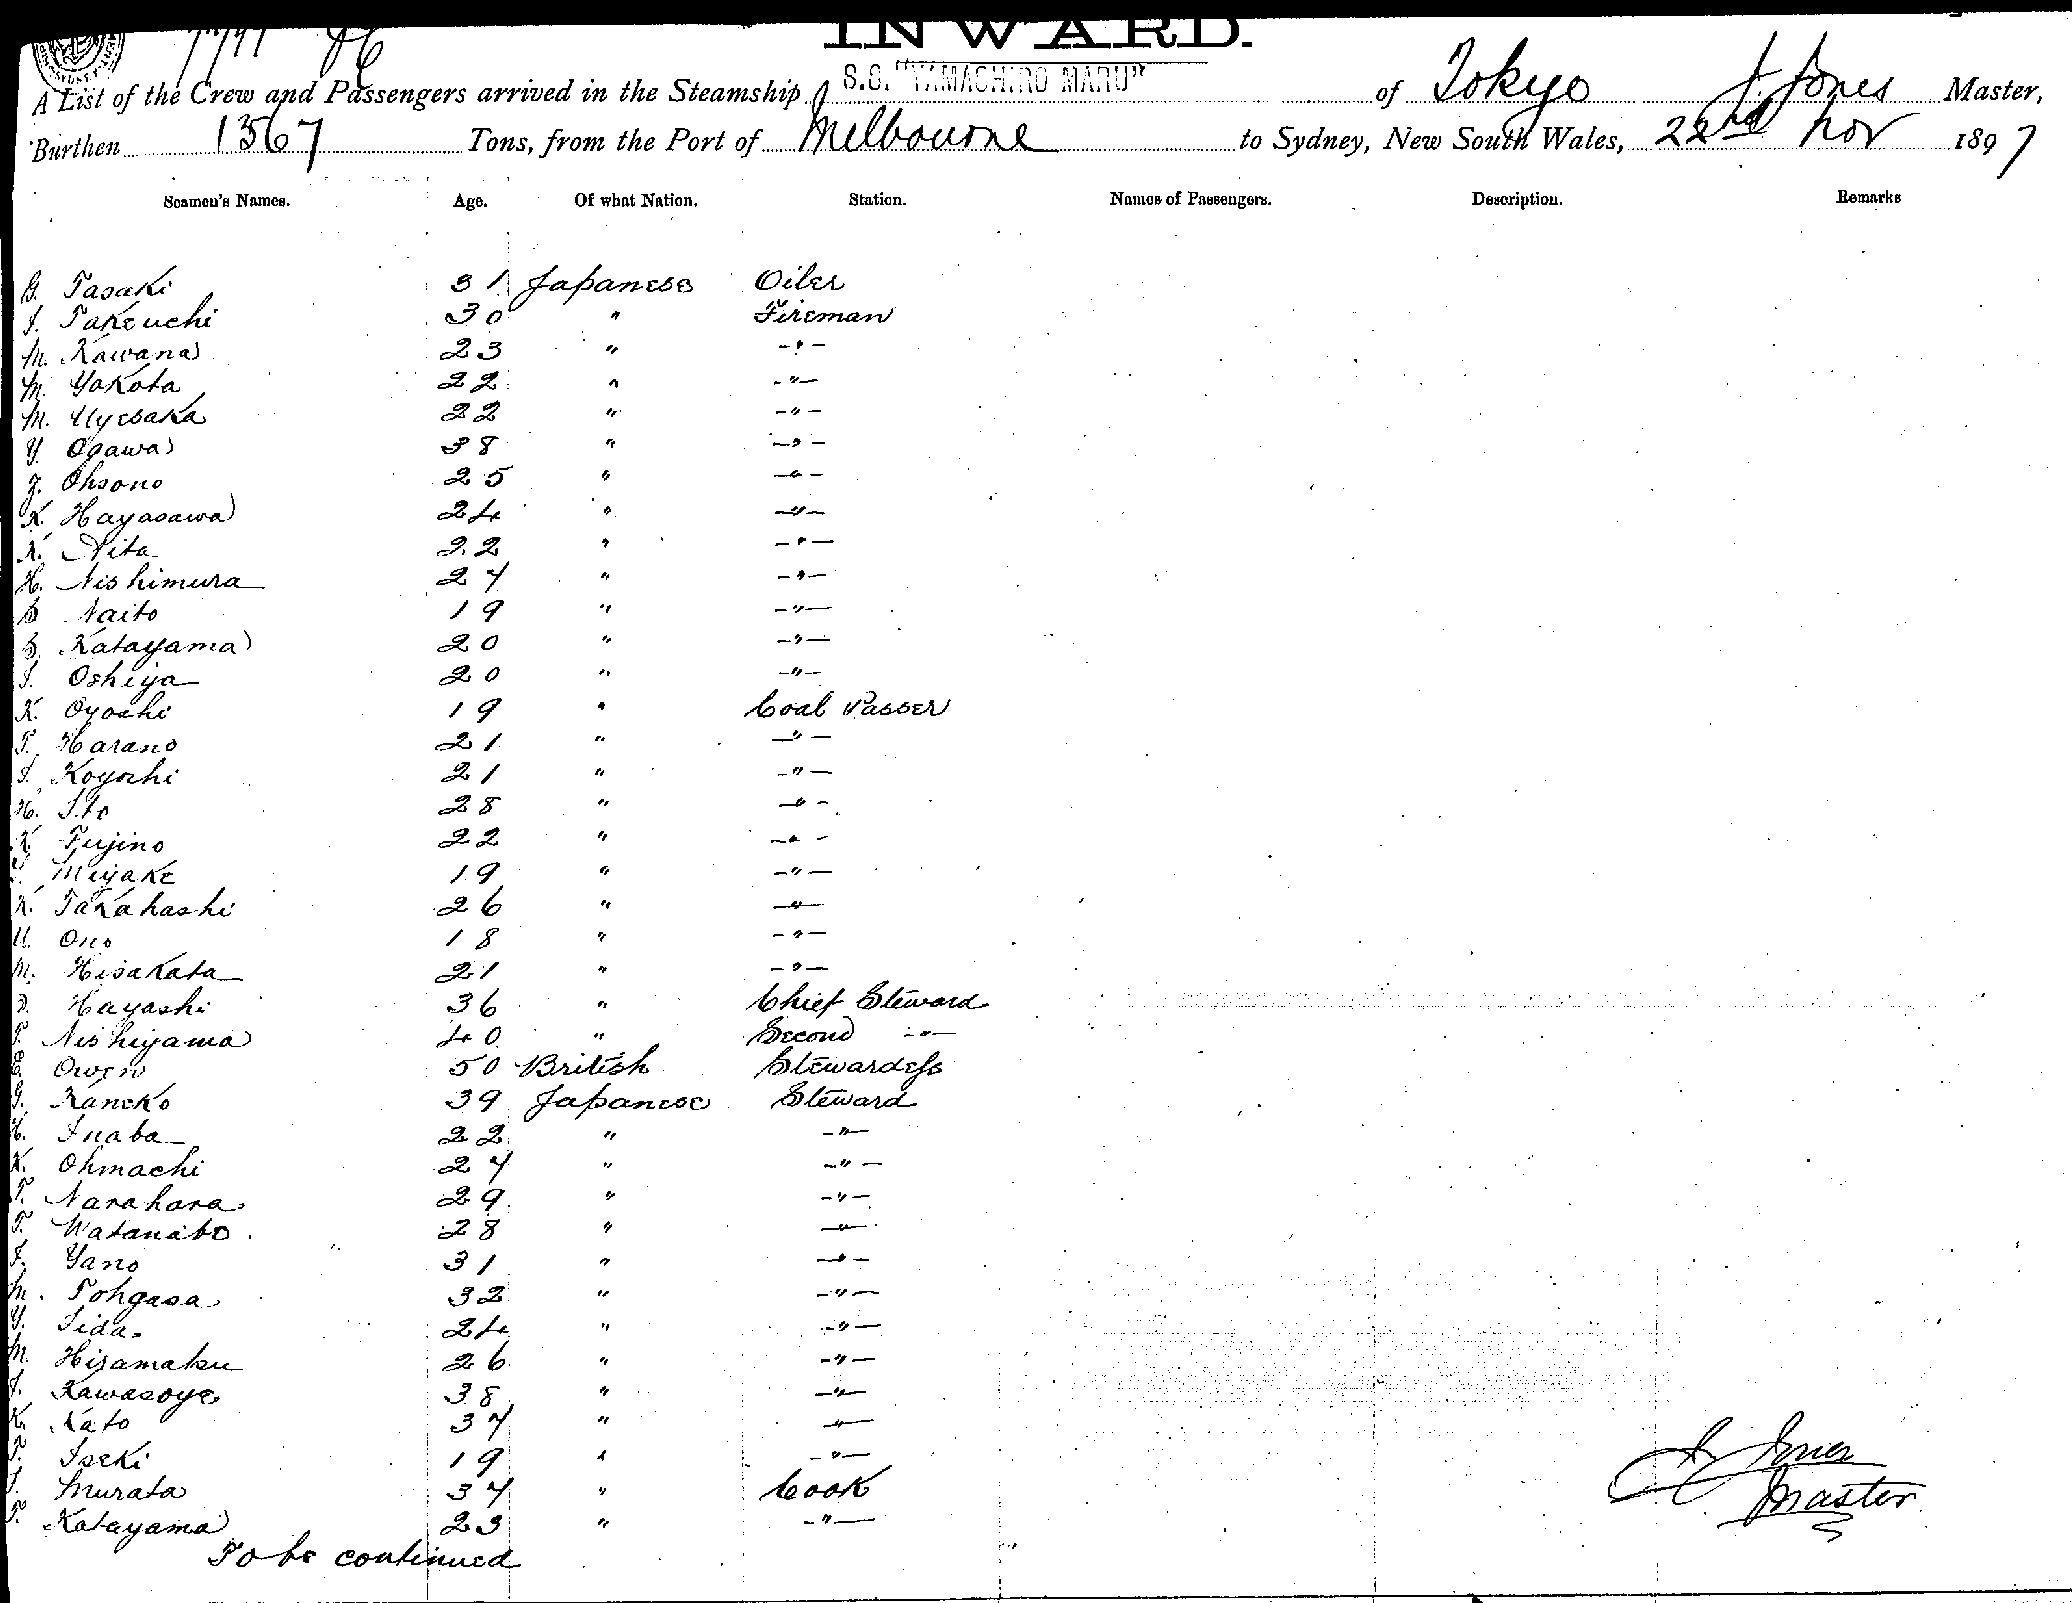 INWARD.
A List of the Crew and Passengers arrived in the Steamship S.S. "YAMACHIRO MARU" of Tokyo J. Jones Master,
Burthen 1367 Tons, from the Port of Melbourne to Sydney, New South Wales, 22nd Nov 1897
Seamen's Names. Age. Of what Nation. Station. Names of Passengers. Description. Remarks
Tasaki 31 Japanese Oiler
Takeuchi 30 " Fireman
M. Kawana 23 " -"-
M. Yokota 22 " -"-
M. Uyesaka 22 " -"-
Y. Ogawa 38 " -"-
Ohsono 25 " -"-
K. Hayasawa 24 " -"-
Nita 22 " -"-
H. Nishimura 27 " -"-
Naito 19 " -"-
S. Katayama 20 " -"-
Oshiya 20 " -"-
K. Oyoshi 19 " Coal Passer
T. Harano 21 " -"-
Koyoshi 21 " -"-
H. Ito 28 " -"-
K. Fujino 22 " -"-
Miyake 19 " -"-
K. Takahashi 26 " -"-
U. Ono 18 " -"-
M. Hisakata 21 " -"-
Hayashi 36 " Chief Steward
T. Nishiyama 40 " Second -"-
E. Owen 50 British Stewardess
G. Kaneko 39 Japanese Steward
Inaba 22 " -"-
K. Ohmachi 27 " -"-
T. Narahara 29 " -"-
T. Watanabe 28 " -"-
Yano 31 " -"-
M. Tohgasa 32 " -"-
Y. Iida 24 " -"-
M. Hisamatsu 26 " -"-
Kawasoye 38 " -"-
K. Kato 37 " -"-
T. Iseki 19 " -"-
Murata 37 " Cook
T. Katayama 23 " -"-
To be continued
J. Jones
Master